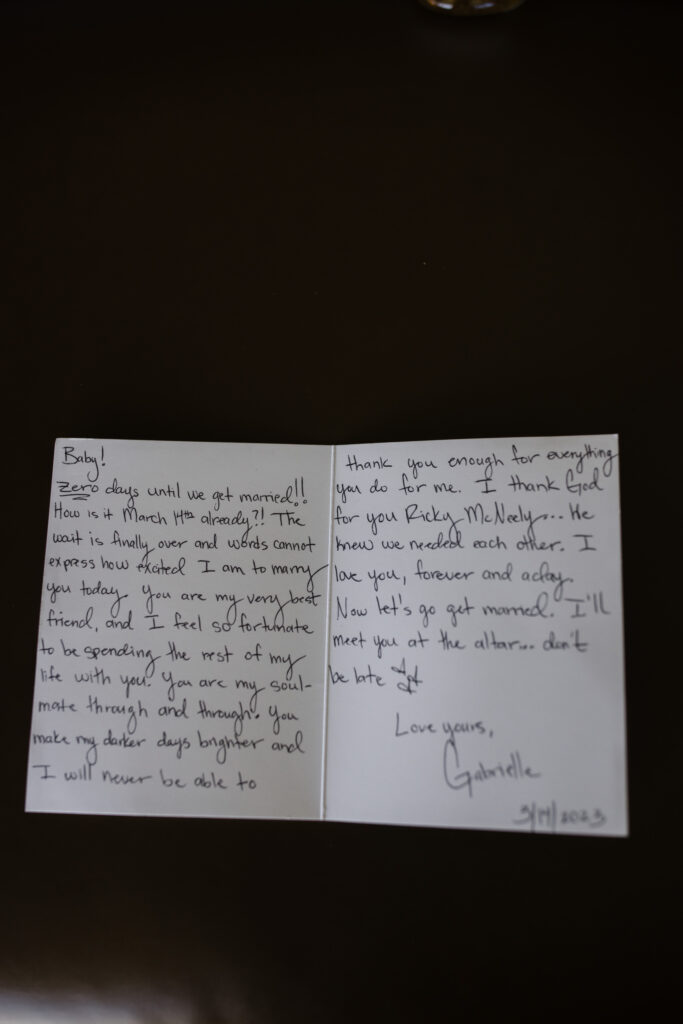 Baby!
zero days until we get married!!
How is it March 14th already?! The
wait is finally over and words cannot
express how excited I am to marry
you today. You are my very best
friend, and I feel so fortunate
to be spending the rest of my
life with you. You are my soul-
mate through and through. You
make my darker days brighter and
I will never be able to
thank you enough for everything
you do for me. I thank God
for you Ricky McNeely... He
knew we needed each other. I
love you, forever and a day.
Now let's go get married. I'll
meet you at the altar... don't
be late
Love yours,
Gabrielle
3/14/2023